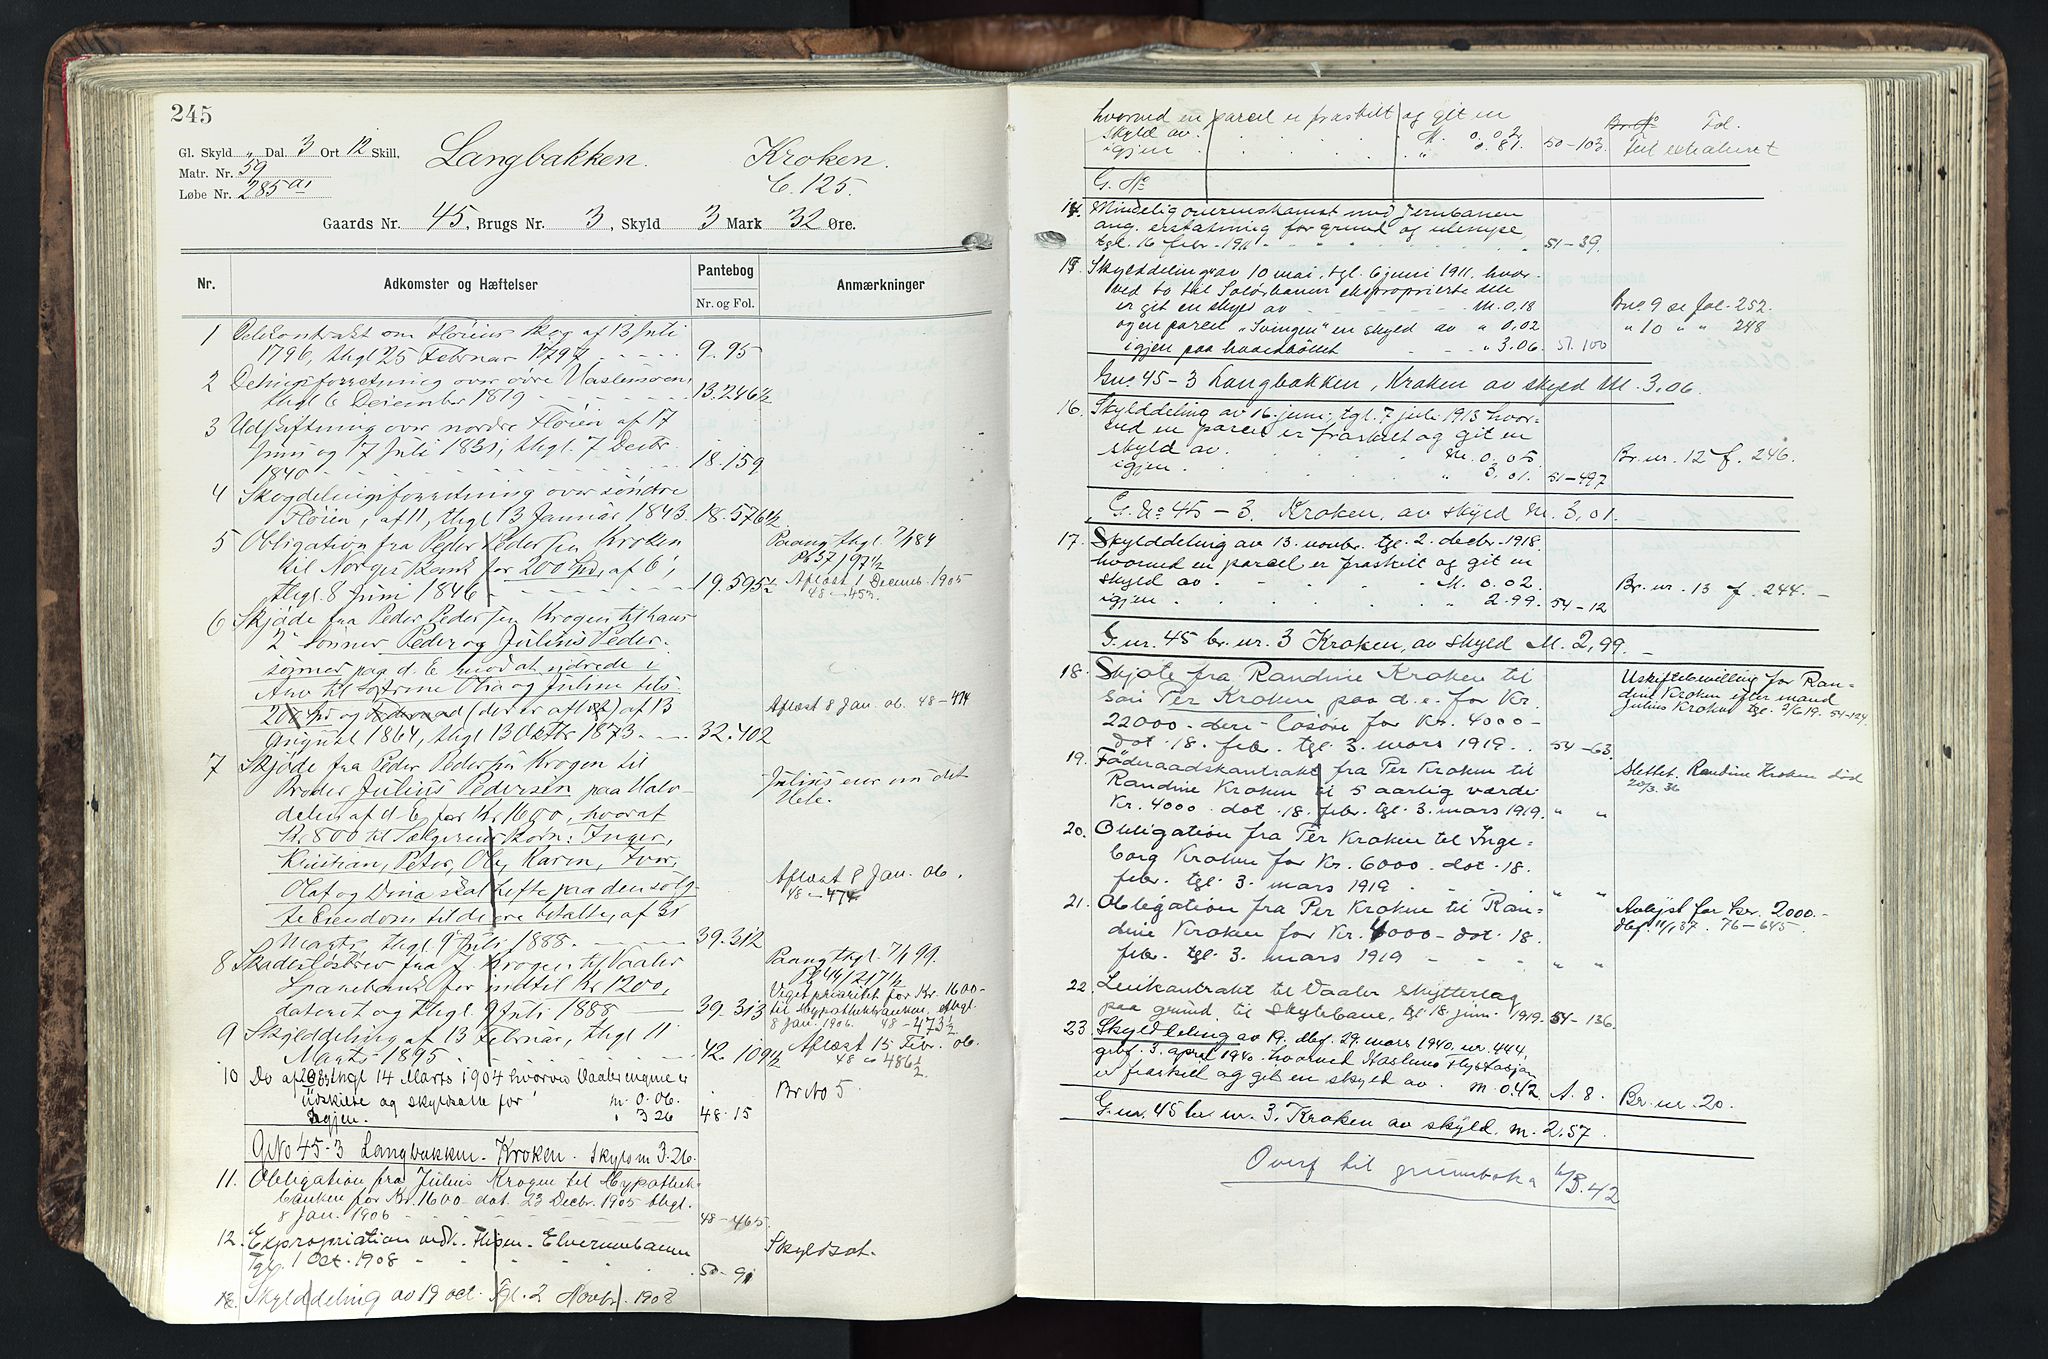 245
Gl. Skyld „ Dal. 3 Ort 12 Skill.
Matr. Nr. 59
Løbe Nr. 285 a1
Langbakken. Kroken.
C. 125.
Gaards Nr. 45, Brugs Nr. 3, Skyld 3 Mark 32 Øre.
Nr. Adkomster og Hæftelser Pantebog Nr. og Fol. Anmærkninger
1 Delekontrakt om Fløiens Skog af 13 Juli
1796, thgl 25 Februar 1797 - - - 9.95
2 Delingsforretning over øvre Haslemoen,
thgl 6 December 1819 - - - 13.246½
3 Udskiftning over nordre Fløien af 17
Juni og 17 Juli 1831, thgl. 7 Decbr
1840 - - - 18.159
4 Skogdelingsforretning over søndre
Fløien, af 11, thgl 13 Januar 1843. 18.576½
5 Obligation fra Peder Pedersen Kroken
til Norges Bank for 200 Spd, af 6,
thgl. 8 Juni 1846 - - - 19.595½
Paaang thgl 7/1 84
Pb 37/197½
Aflæst 1 Decemb. 1905
48 - 453.
6 Skjøde fra Peder Pedersen Krogen til hans
2 Sønner Peder og Julius Peder-
sønner paa d. E. mod at udrede i
Arv til Søstrene Olia og Juline
200 Spd og Føderaad (der er aflyst) af 13
August 1864, thgl 13 Octbr 1873. - - 32.402
Aflæst 8 Jan. 06. 48 - 474
7 Skjøde fra Peder Pedersen Krogen til
Broder Julius Pedersen paa Halv-
delen af d. E. for Kr 1600, hvoraf
Kr. 800 til Sælgerens Børn: Inger,
Kristian, Peter, Ole, Karen, Iver,
Olaf og Dina skal hefte paa den solg-
te Eiendom til de ere betalte, af 31
Marts, thgl 9 Juli 1888. - - - 39.312
Julius eier nu det
Hele.
Aflæst 8 Jan. 06.
48 - 474
8 Skadesløsbrev fra J. Krogen til Vaaler
Sparebank for indtil Kr 1200,
dateret og thgl. 9 Juli 1888 - - 39.313
Paaang thgl. 7/1 99.
Pb 44/217½
Viget prioritet for Kr. 1600-
til Hypothekbanken, thgl.
8 Jan. 1906. 48 - 473½
Aflæst 15 Febr. 06.
48 - 486½
9 Skylddeling af 13 Februar, thgl 11
Marts 1895 - - - 42.109½
10 Do af 20/2, thgl 14 Marts 1904 hvorved Vaaler
udskilte og skyldsatte for m. 0.06.
Igjen. " 3 26 48.15
Br No 5
GNo 45-3 Langbakken - Kroken. Skyld m 3.26.
11. Obligation fra Julius Krogen til Hypothek-
banken for Kr. 1600 - dat. 23 Decbr. 1905 thgl.
8 Jan. 1906 - - - 48 - 465.
12. Expropriation vedk. Flisen - Elverumbanen
Tgl. 1 Oct. 1908 " " " " 50 - 91
Skyldsat.
13. Skylddeling av 19 oct. tgl. 2 Novbr. 1908
hvorved en parcel er fraskilt og git en
skyld av . . . . M. 0.02
igjen . . . . " 0.81. 50 - 103.
Br. No Fol.
G. No
14. Mindelig overenskomst med Jernbanen
ang. erstatning for grund og ulempe,
tgl. 16 febr. 1911 - " " " " 51 - 39.
15. Skylddeling av 10 mai, tgl. 6 juni 1911, hvor-
ved to til Solørbanen eksproprierte dele
er git en skyld av - - - M. 0,18
og en parcel „Svingen" en skyld av „ 0,02
igjen paa hovedbøllet - - - „ 3.06. 51.100
Bno. 9 se fol. 252.
" 10 " " 248
Gno. 45 - 3 Langbakken, Kroken av skyld M. 3,06.
16. Skylddeling av 16. juni, tgl. 7 juli 1913 hvor-
ved en parcel er fraskilt og git en
skyld av . . . . M. 0,05
igjen . . . . " 3,01. 51 - 497
Br. nr. 12 f. 246.
G. No 45 - 3. Kroken, av skyld M. 3,01. -
17. Skylddeling av 13. novbr. tgl. 2. decbr. 1918.
hvorved en parcel er fraskilt og git en
skyld av - - - M. 0.02.
igjen . . . . " 2.99. 54 - 12
Br. nr. 13 f. 244. -
G. nr. 45 br. nr. 3 Kroken, av skyld M. 2,99. -
18. Skjøte fra Randine Kroken til
søn Per Kroken paa d. e. for Kr.
22000 - deri løsøre for Kr. 4000 -
dat. 18. febr. tgl. 3. mars 1919. . 54 - 63.
Uskiftebevilling for Ran-
dine Kroken efter mand
Julius Kroken tgl. 3/6 19. 54 - 124
19. Föderaadskontrakt fra Per Kroken til
Randine Kroken til 5 aarlig værdi
Kr. 4000 dat. 18. febr. tgl. 3. mars 1919. " "
Slettet. Randine Kroken död
20/3. 36
20. Obligation fra Per Kroken til Inge-
borg Kroken for Kr. 6000 - dat. 18.
febr. tgl. 3. mars 1919 . - - " "
21. Obligation fra Per Kroken til Ran-
dine Kroken for Kr. 4000 - dat. 18.
febr. tgl. 3. mars 1919 - - - " "
Avlyst for kr. 2000. -
dbf 11/1 37. 76 - 645.
22. Leiekontrakt til Vaaler skytterlag
paa grund til Skytebane, tgl 18 juni 1919. 54 - 136.
23 Skylddeling av 19. dbf. 29. mars 1940. nr. 444,
grbf. 3. april 1940. hvorved Haslemo Flystasjon
er fraskilt og git en skyld av . m. 0.42 A. 8.
Br. nr. 20.
G. nr. 45 br. nr. 3. Kroken av skyld. m. 2.57.
Overf til grunnboka 6/3. 42